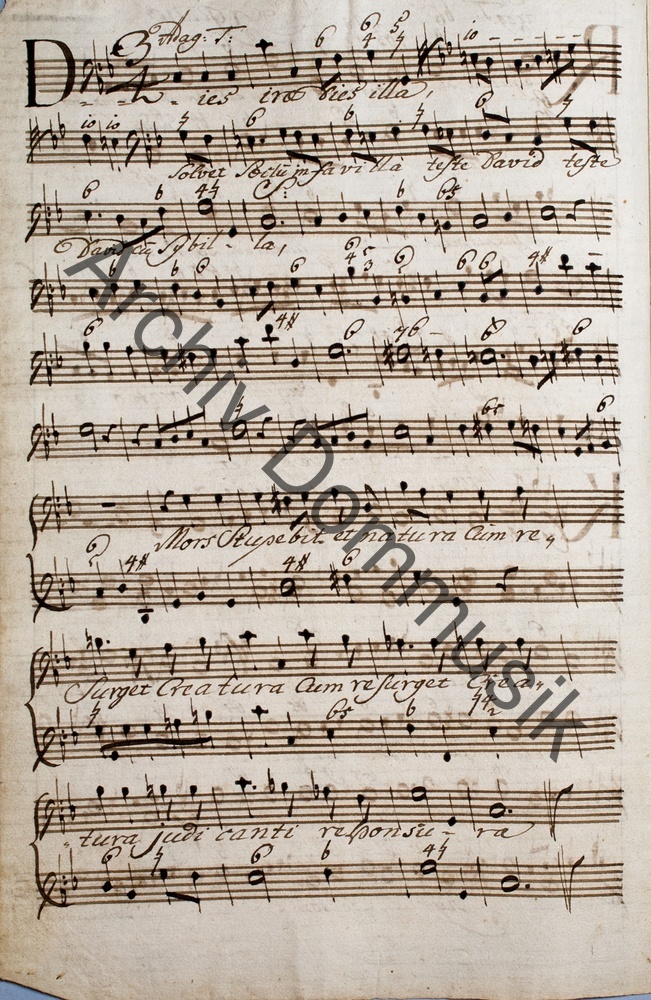 Adag: S:
Dies irae Dies illa,
Solvet Saeclu in favilla teste David teste
David cu Sybil- la,
Mors Stupebit et natura Cum re„
Surget Creatura Cum reSurget Crea„
„tura judicanti responsu- ra
Archiv Dommusik